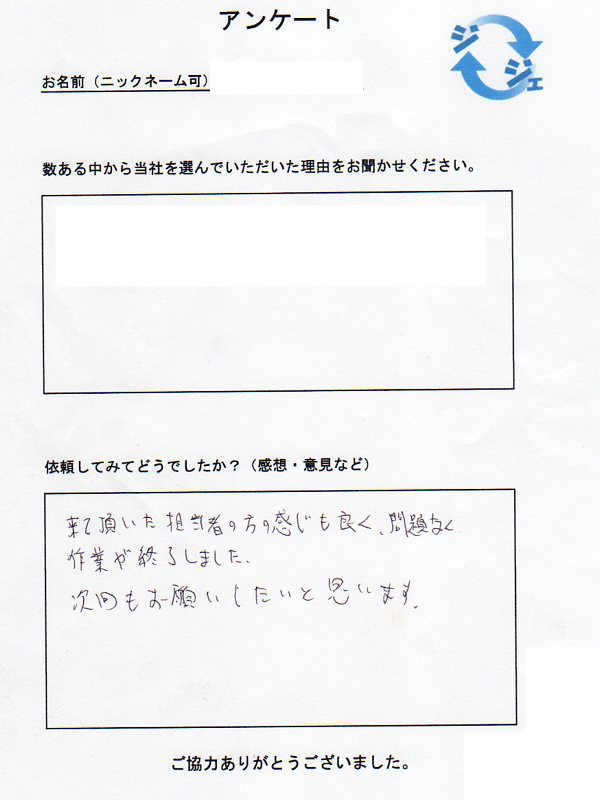 アンケート
ジジェ
お名前（ニックネーム可）
数ある中から当社を選んでいただいた理由をお聞かせください。
依頼してみてどうでしたか？（感想・意見など）
来て頂いた担当者の方の感じも良く、問題なく
作業が終了しました。
次回もお願いしたいと思います。
ご協力ありがとうございました。